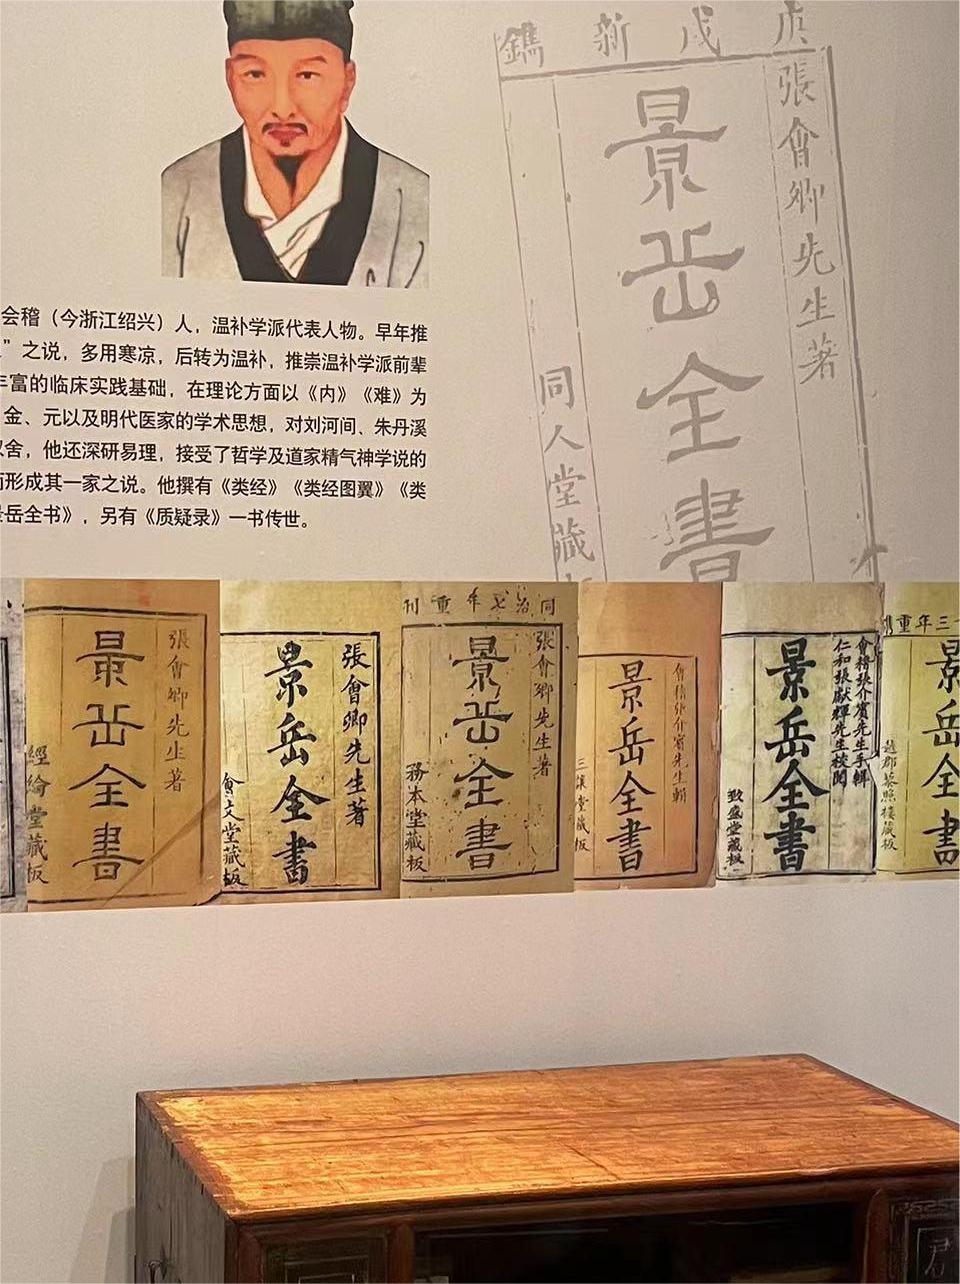 会稽（今浙江绍兴）人，温补学派代表人物。早年推
”之说，多用寒凉，后转为温补，推崇温补学派前辈
丰富的临床实践基础，在理论方面以《内》《难》为
金、元以及明代医家的学术思想，对刘河间、朱丹溪
取舍，他还深研易理，接受了哲学及道家精气神学说的
而形成其一家之说。他撰有《类经》《类经图翼》《类
景岳全书》，另有《质疑录》一书传世。
庚戌新鐫
張會卿先生著
景岳全書
同人堂藏
張會卿先生著
景岳全書
經綸堂藏板
張會卿先生著
景岳全書
文堂藏板
同治七年重刊
張會卿先生著
景岳全書
務本堂藏板
會稽張介賓先生輯
景岳全書
三讓堂藏板
會稽張介賓先生手輯
仁和張獻輝先生校閱
景岳全書
致盛堂藏板
三年重鐫
景岳全書
趙郡藜照樓藏板